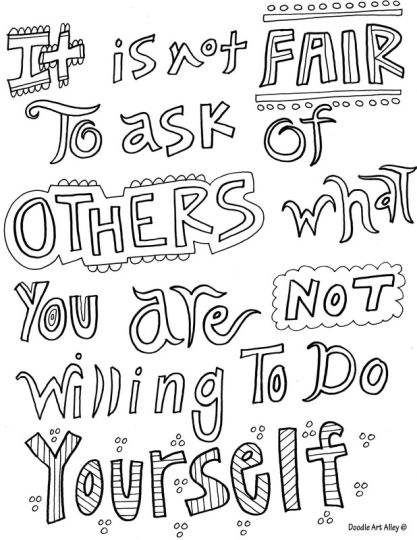 It is not FAIR
To ask of
OTHERS what
You are NOT
willing To Do
Yourself
Doodle Art Alley ©